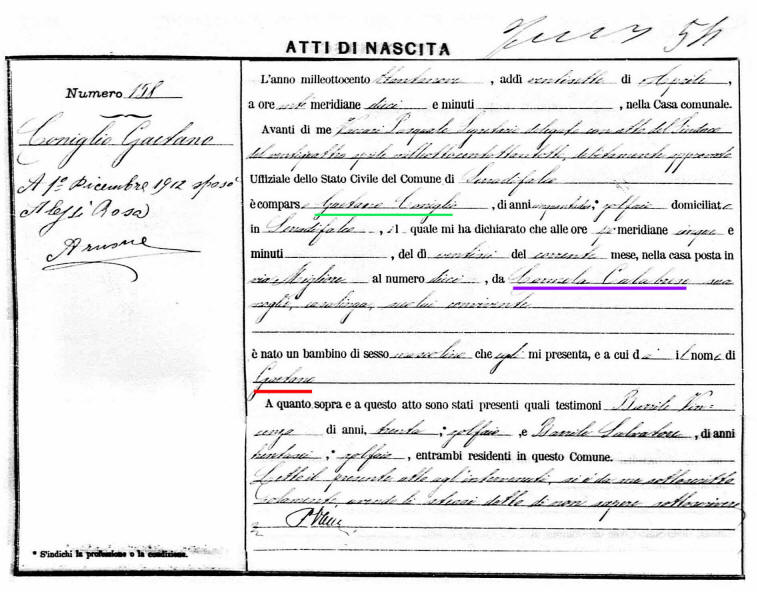 54
ATTI DI NASCITA
Numero 158
Coniglio Gaetano
A 1° Dicembre 1912 sposò
Alessi Rosa
L'anno milleottocento ottantanove, addì ventisette di Aprile,
a ore anti meridiane dieci e minuti , nella Casa comunale.
Avanti di me Vaccari Pasquale Segretario delegato con atto del Sindaco
del ventiquattro aprile milleottocentottantotto, debitamente approvato
Uffiziale dello Stato Civile del Comune di Serradifalco
è comparso Gaetano Coniglio, di anni ; zolfaio domiciliato
in Serradifalco, il quale mi ha dichiarato che alle ore meridiane cinque e
minuti , del dì del corrente mese, nella casa posta in
via Migliore al numero dieci, da Carmela Calabrese sua
moglie, casalinga, seco lui convivente
è nato un bambino di sesso mascolino che egli mi presenta, e a cui dà il nome di
Gaetano
A quanto sopra e a questo atto sono stati presenti quali testimoni Barile Vin-
cenzo di anni, trenta; zolfaio, e Barile Salvatore, di anni
trentasei; zolfaio, entrambi residenti in questo Comune.
Letto il presente atto agl'intervenuti, si è da me sottoscritto
solamente, avendo li stessi detto di non sapere sottoscrivere
* S'indichi la professione o la condizione.